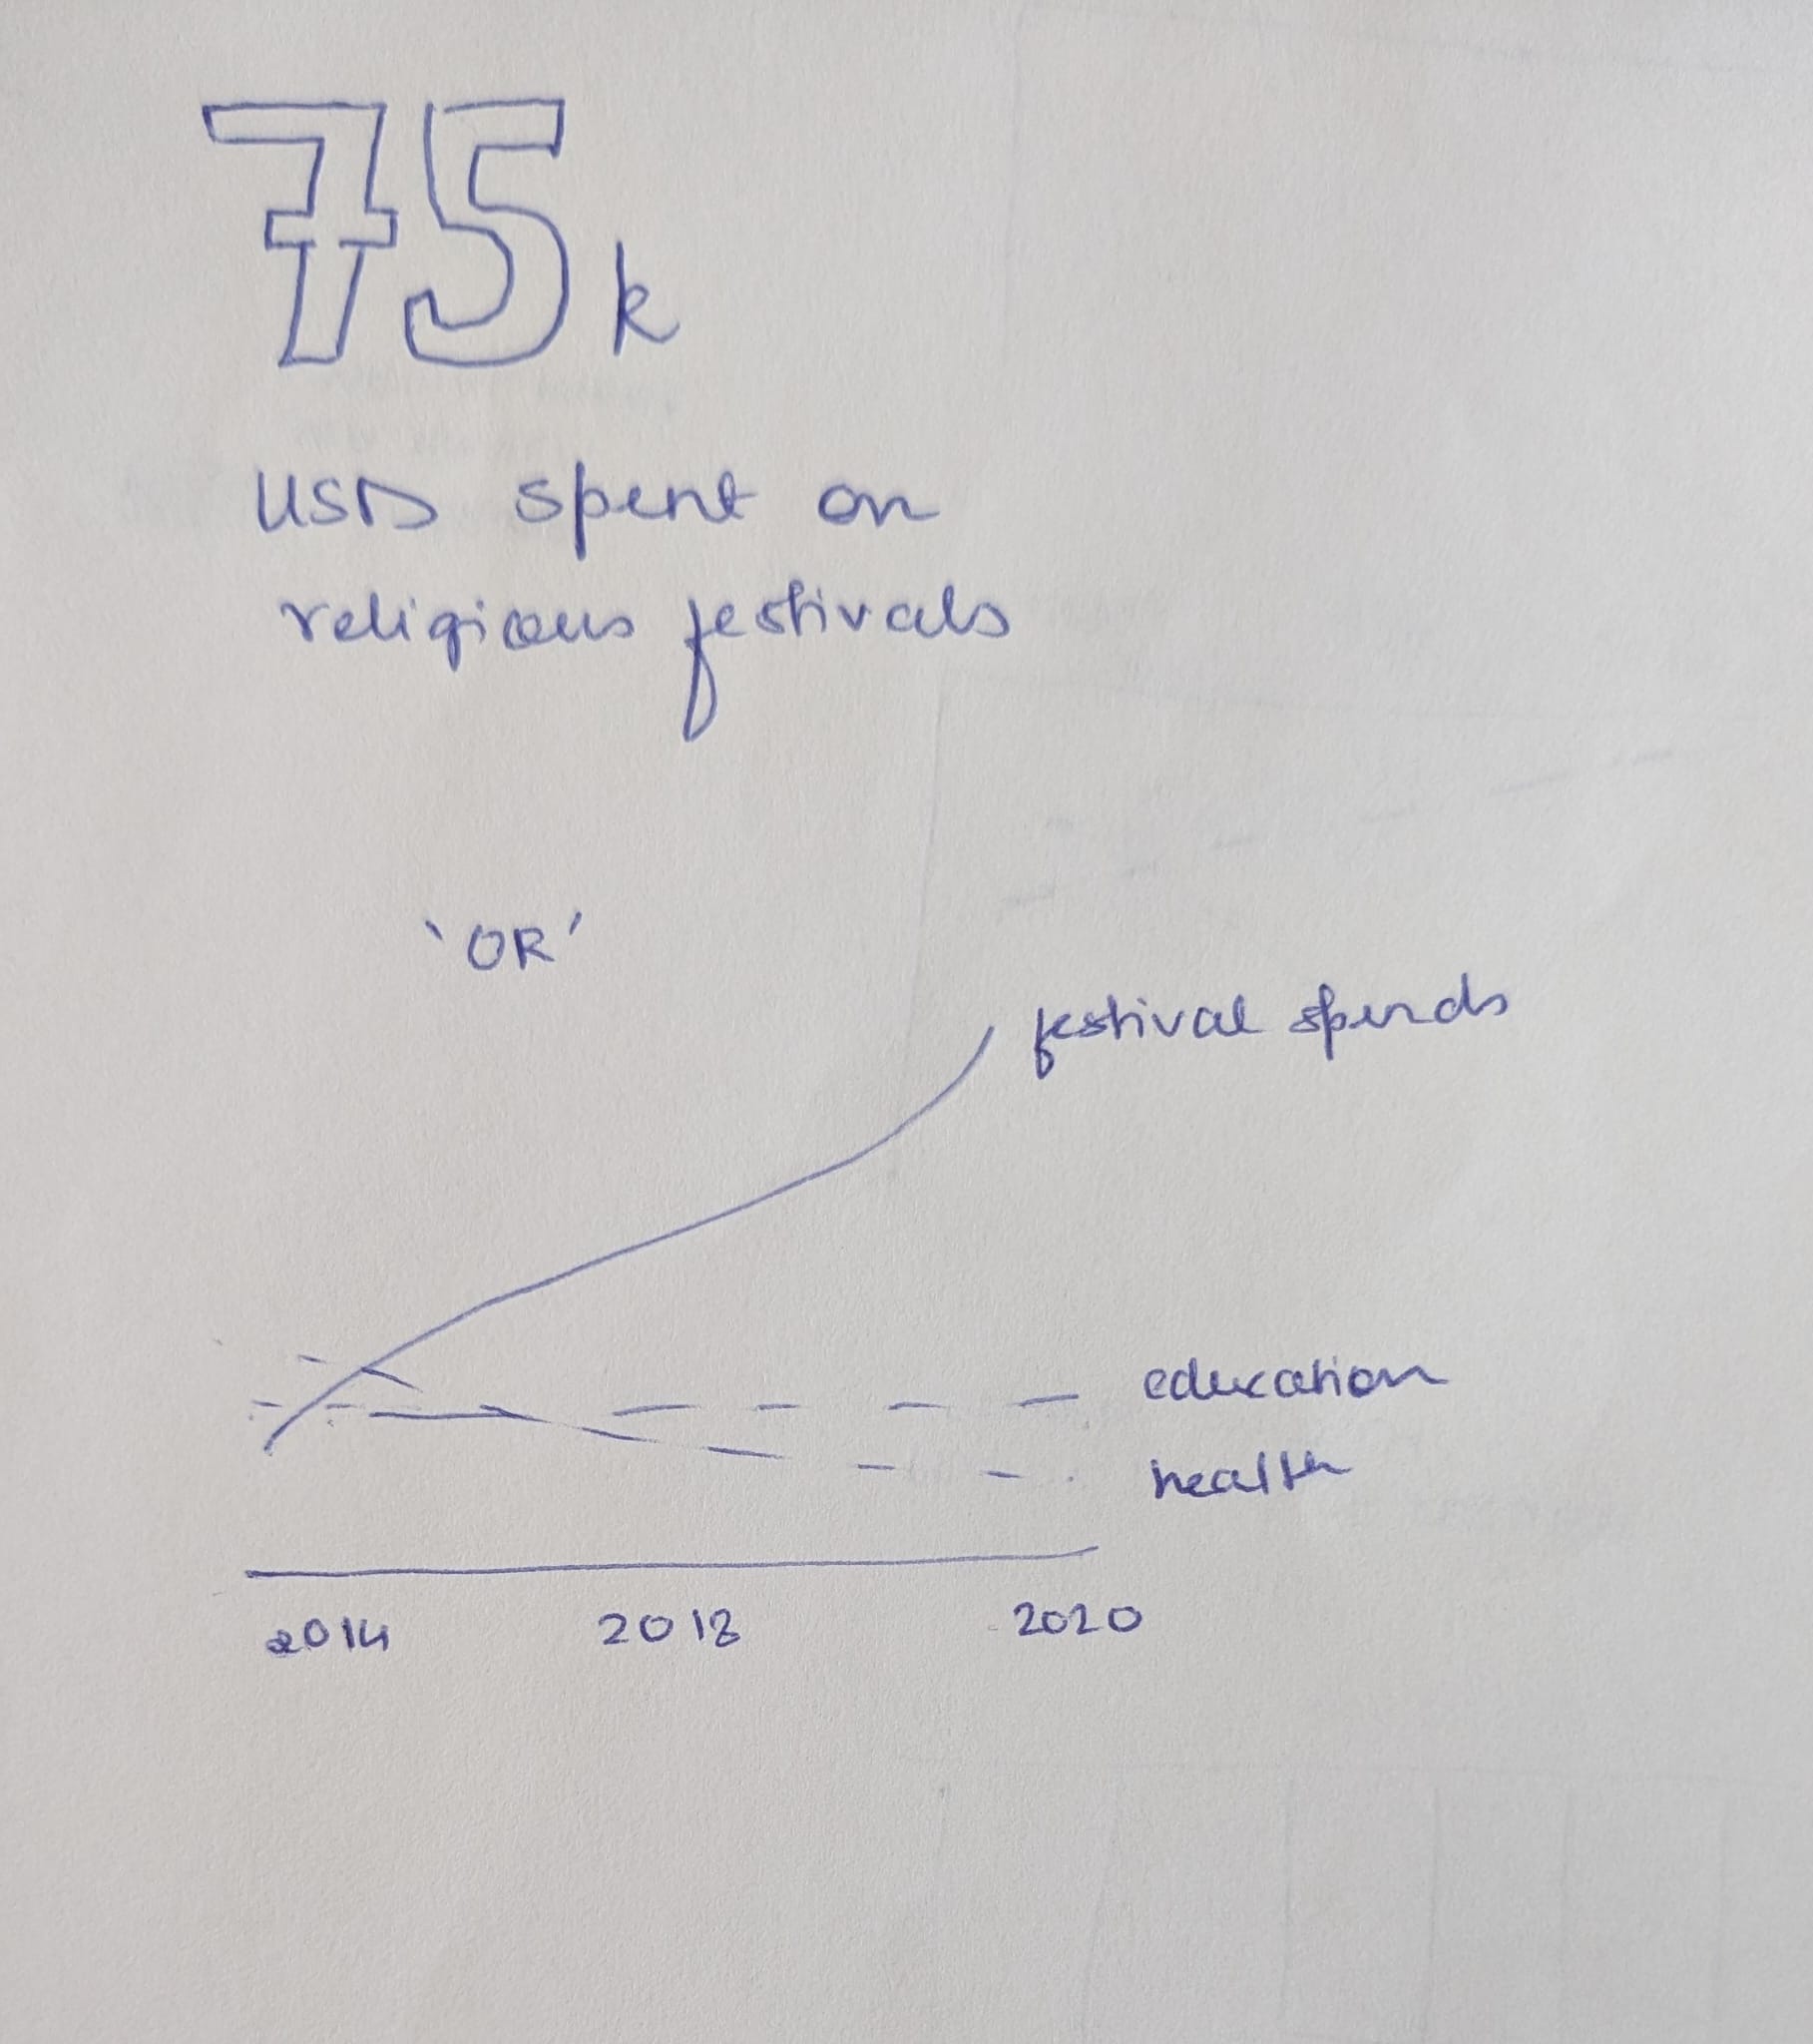 75k
USD spent on
religious festivals
'OR'
festival spends
education
health
2014 2018 2020